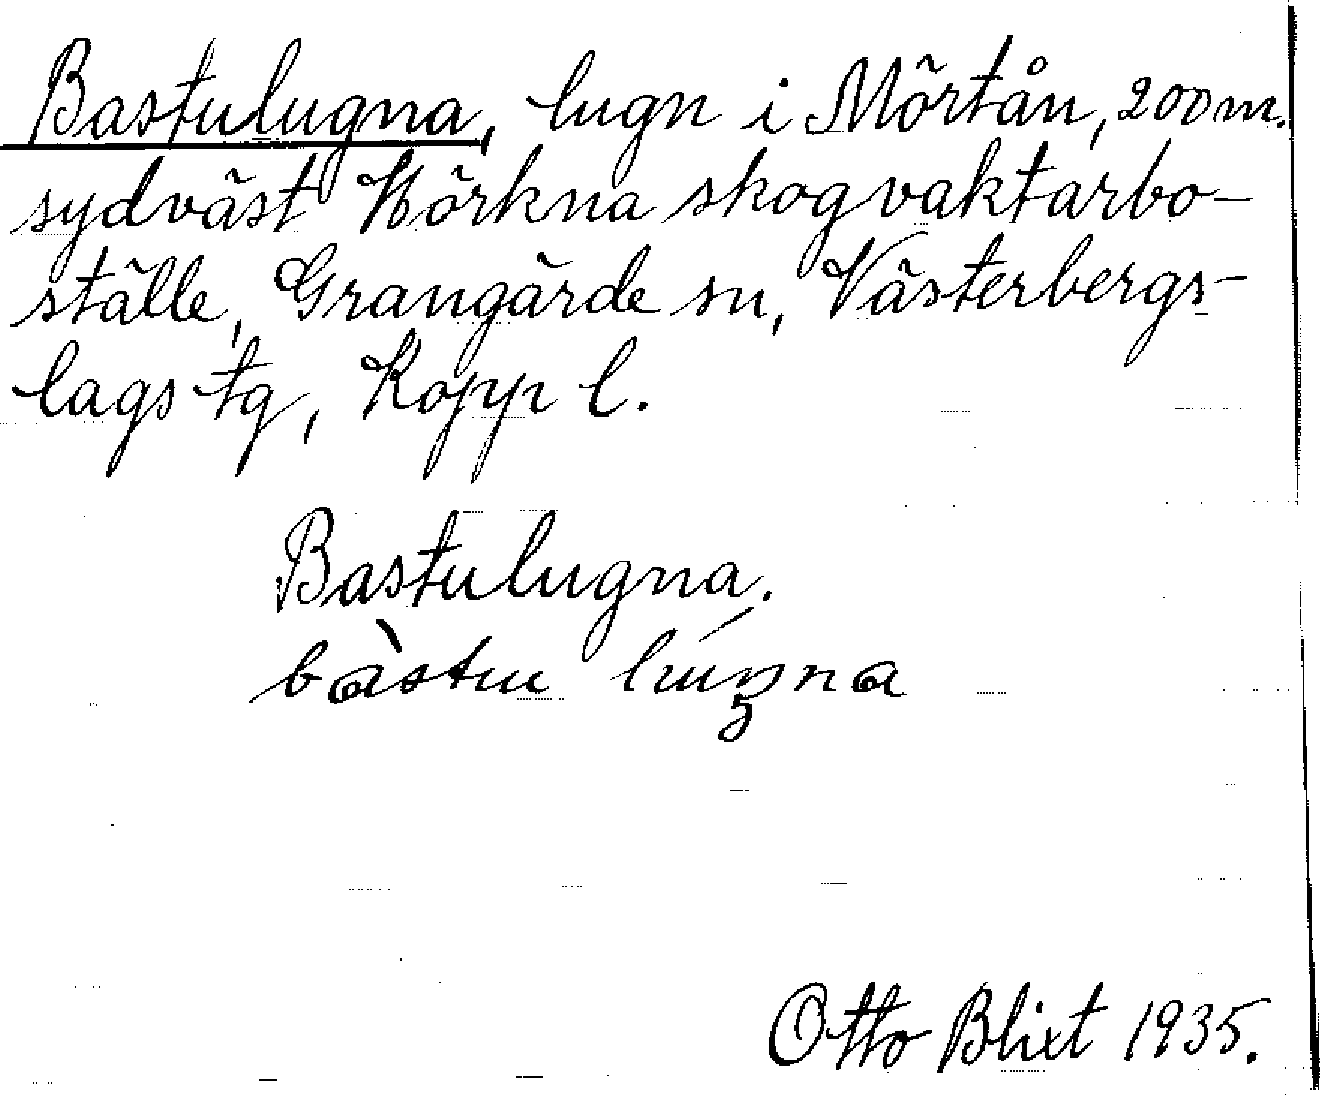 Bastulugna, lugn i Mörtån, 200 m.
sydväst Hörkna skogvaktarbo-
ställe, Grangärde sn, Västerbergs-
lags tg, Kopp l.
Bastulugna.
bàstu
Otto Blixt 1935.